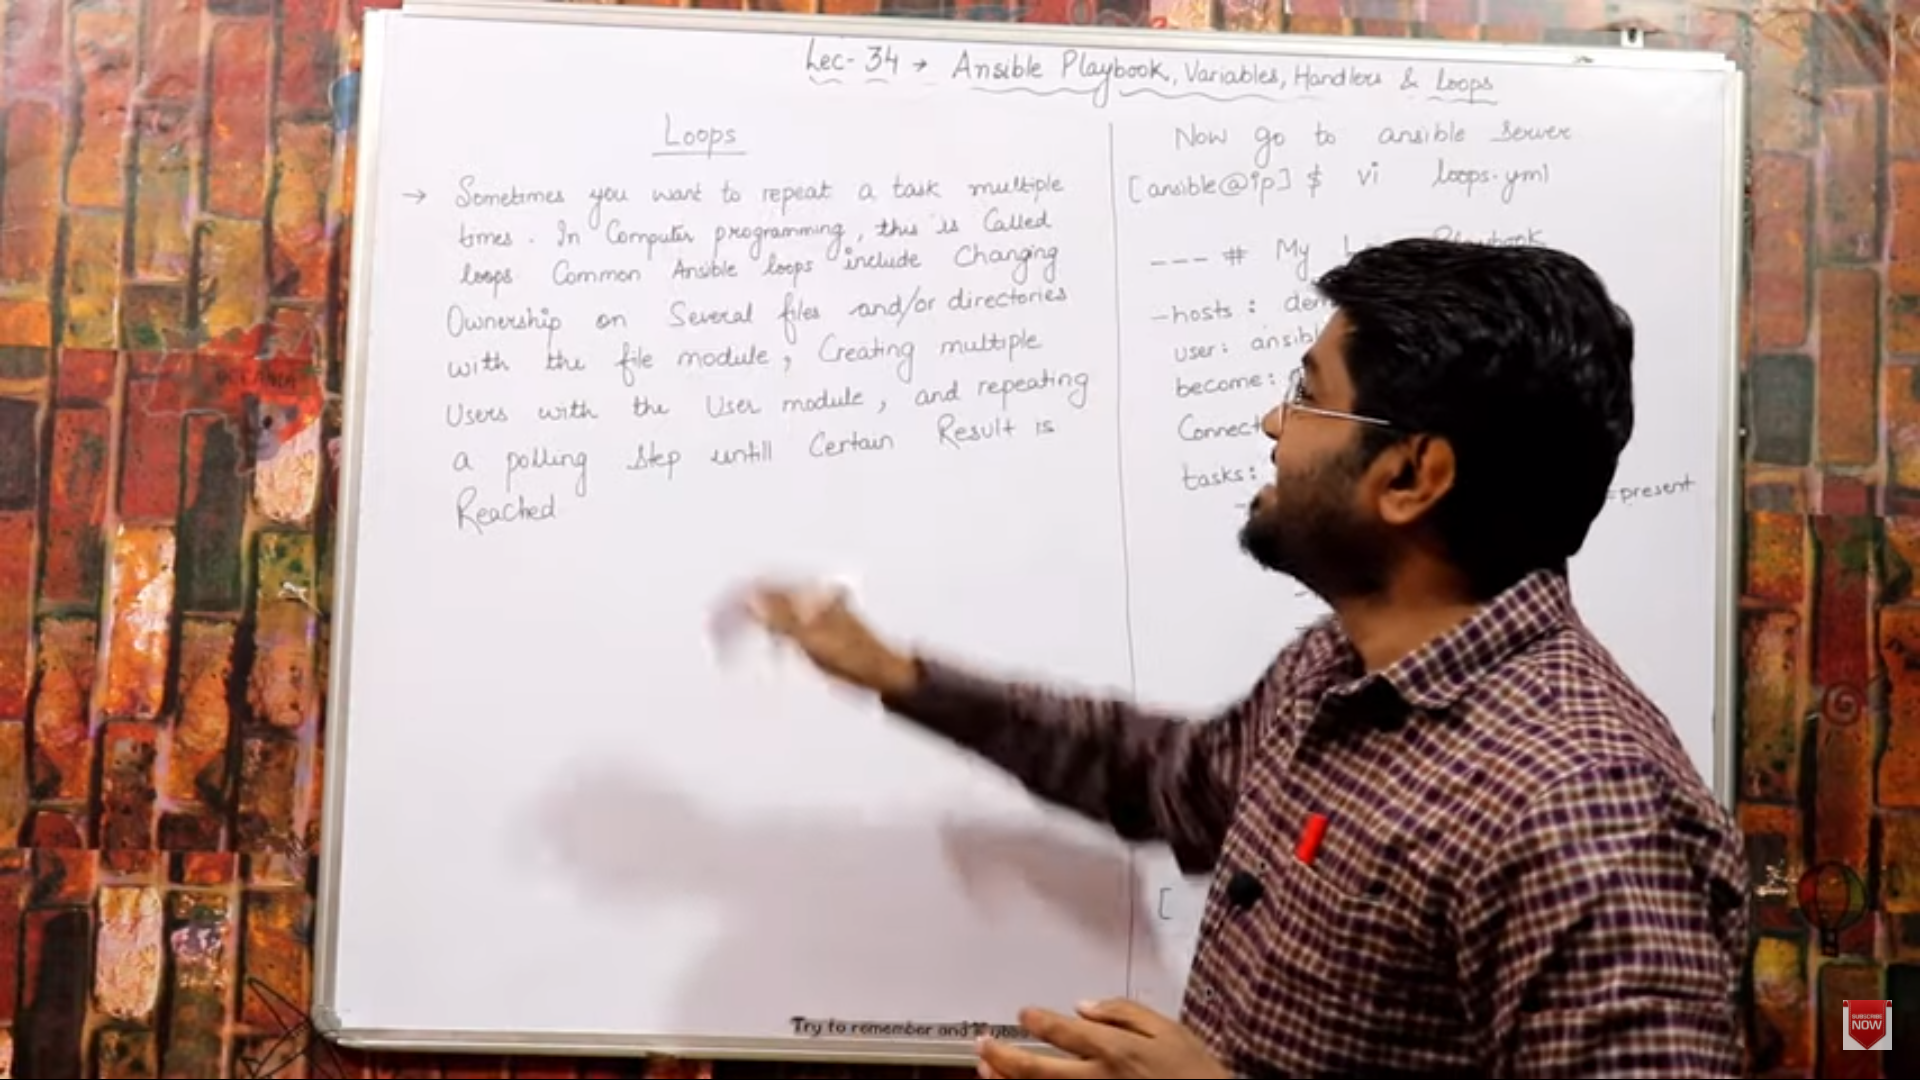 Lec-34 → Ansible Playbook, Variables, Handlers & Loops
Loops
→ Sometimes you want to repeat a task multiple
times. In Computer programming, this is Called
loops Common Ansible loops include Changing
Ownership on Several files and/or directories
with the file module, Creating multiple
Users with the User module, and repeating
a polling Step untill Certain Result is
Reached
Now go to ansible server
[ansible@ip] $ vi loops.yml
--- # My Playbook
- hosts:
user:
become:
tasks:
=present
[
Try to remember and
SUBSCRIBE
NOW